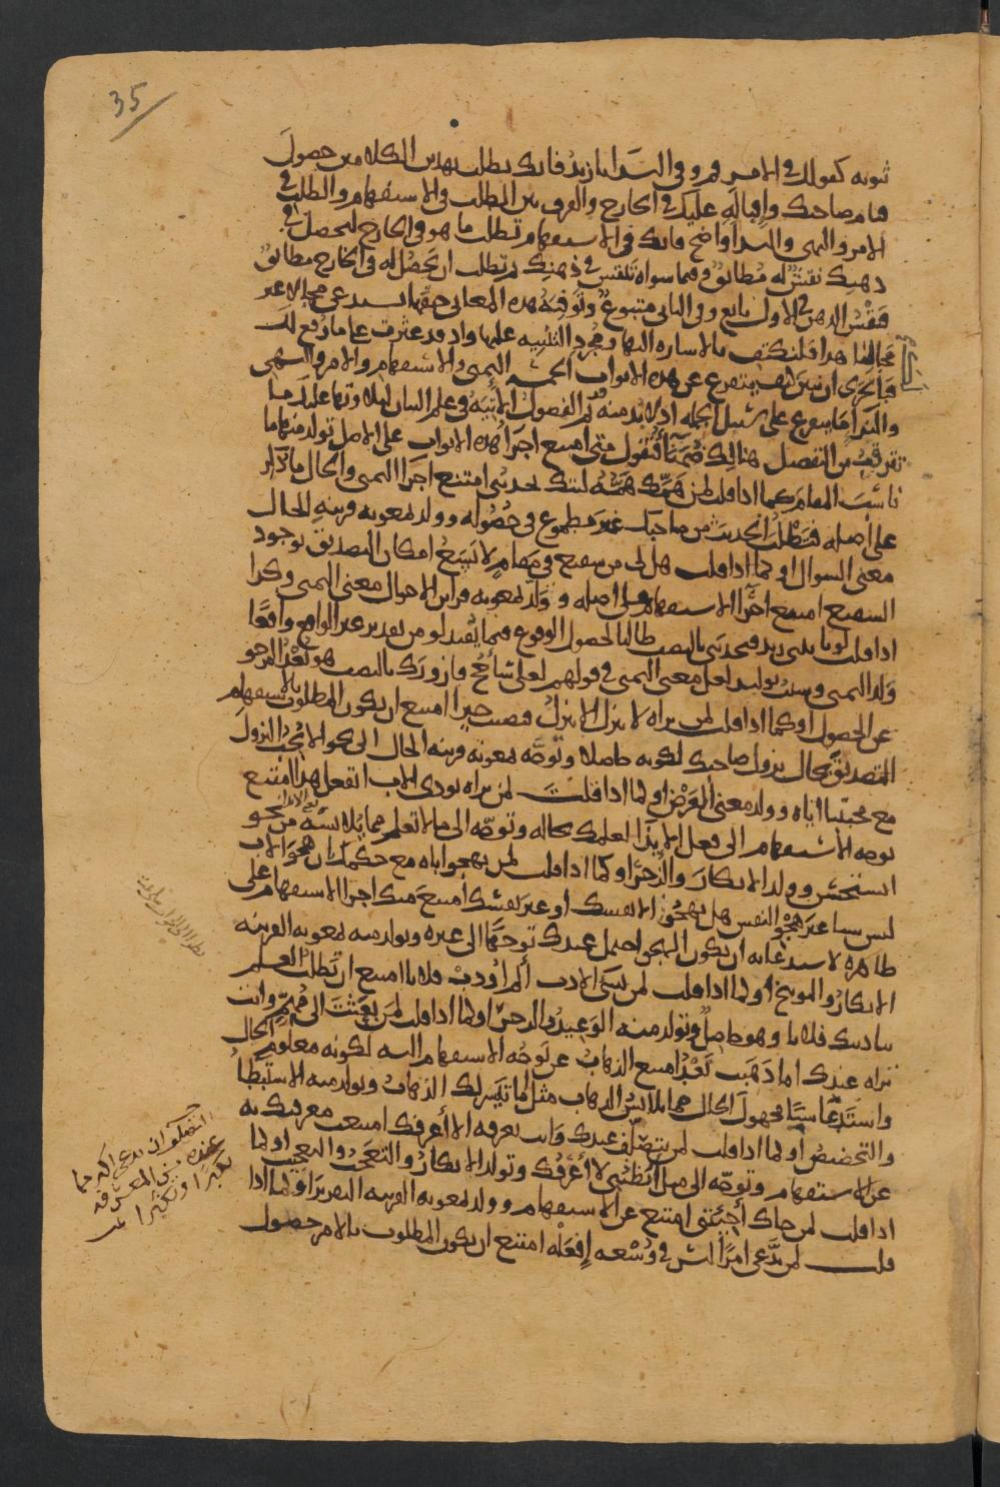 35
ثبوته كقولك في الامر قم وفي الندا يا زيد فانك تطلب بهذين الكلامين حصول
قيام صاحبك وإقباله عليك في الخارج والفرق بين الطلب في الاستفهام والطلب في
الامر والنهي والندا واضح فانك في الاستفهام تطلب ما هو في الخارج ليحصل في
ذهنك نقش له مطابق وفيما سواه تنقش في ذهنك ثم تطلب ان يحصل له في الخارج مطابق
فنقش الذهن في الاول تابع وفي الثاني متبوع وتوفية هذه المعاني حقها يستدعي مجالا غير
مجالنا هذا فلنكتف بالاشارة اليها ومجرد التنبيه عليها واذ قد عثرت على ما رفع لك
فبالحري ان نبين كيف يتفرع عن هذه الابواب الخمسة التمني والاستفهام والامر والنهي
والندا ما يتفرع على سبيل الجملة اذ لا بد منه ثم الفصول الاتية في علم البيان لتلاوتها عليك ما
تترقبه من التفصيل هنالك ضمناء فنقول متى امتنع اجرا هذه الابواب على الاصل تولد منها ما
ناسب المقام كما اذا قلت لمن همك همه ليتك تحدثني امتنع اجرا التمني والحال ما ذكر
على اصله فتطلب الحديث من صاحبك غير مطموع في حصوله وولد بمعونة قرينة الحال
معنى السوال او كما اذا قلت هل لي من شفيع في مقام لا يسع امكان التصديق بوجود
الشفيع امتنع اجرا الاستفهام على اصله وولد بمعونة قراين الاحوال معنى التمني وكذا
اذا قلت لو ياتيني زيد فيحدثني بالنصب طالبا لحصول الوقوع فيما يفيد لو من تقدير غير الواقع واقعا
ولد التمني وسبب توليد لعل معنى التمني في قولهم لعلي ساحج فازورك بالنصب هو بعد المرجو
عن الحصول او كما اذا قلت لمن تراه لا ينزل الا تنزل فتصيب خيرا امتنع ان يكون المطلوب بالاستفهام
التصديق بحال نزول صاحبك لكونه حاصلا وتوجه بمعونة قرينة الحال الى نحو الا تحب النزول
مع محبتنا اياه وولد معنى العرض او كما اذا قلت لمن تراه يوذي الاب اتفعل هذا امتنع
توجه الاستفهام الى فعل الاذا لعلمك بحاله وتوجه الى ما لا تعلم مما يلابسه من نحو
اتستحسن وولد الانكار والزجر او كما اذا قلت لمن يهجو اباه مع حكمك بان هجو الاب
ليس شيا غير هجو النفس هل تهجو الا نفسك او غير نفسك امتنع منك اجرا الاستفهام على
ظاهره لاستدعائه ان يكون الهجو احتمل عندك توجها الى غيره وتولد منه بمعونة القرينة
الانكار والتوبيخ او كما اذا قلت لمن يسي الادب ألم أودب فلانا امتنع ان تطلب العلم
بتاديبك فلانا وهو حاصل وتولد منه الوعيد والزجر او كما اذا قلت لمن بعثت الى مهم وانت
تراه عندك اما ذهبت بعد امتنع الذهاب عن توجه الاستفهام اليه لكونه معلوم الحال
واستدعا شيا مجهول الحال مما يلابس الذهاب مثل اما تيسر لك الذهاب وتولد منه الاستبطا
والتحضيض او كما اذا قلت لمن يتصلف عندك وانت تعرفه الا أعرفك امتنعت معرفتك به
عن الاستفهام وتوجه الى مثل اتظنني لا أعرفك وتولد الانكار والتعجب والتعجيب او كما
اذا قلت لمن جاك أجئتني امتنع عن الاستفهام وولد بمعونة القرينة التقرير او كما اذا
قلت لمن يدعي امرا ليس في وسعه إفعله امتنع ان يكون المطلوب بالامر حصول
التصلف ان يدعي اكثر مما
عنده
تكبرا وتكثرا